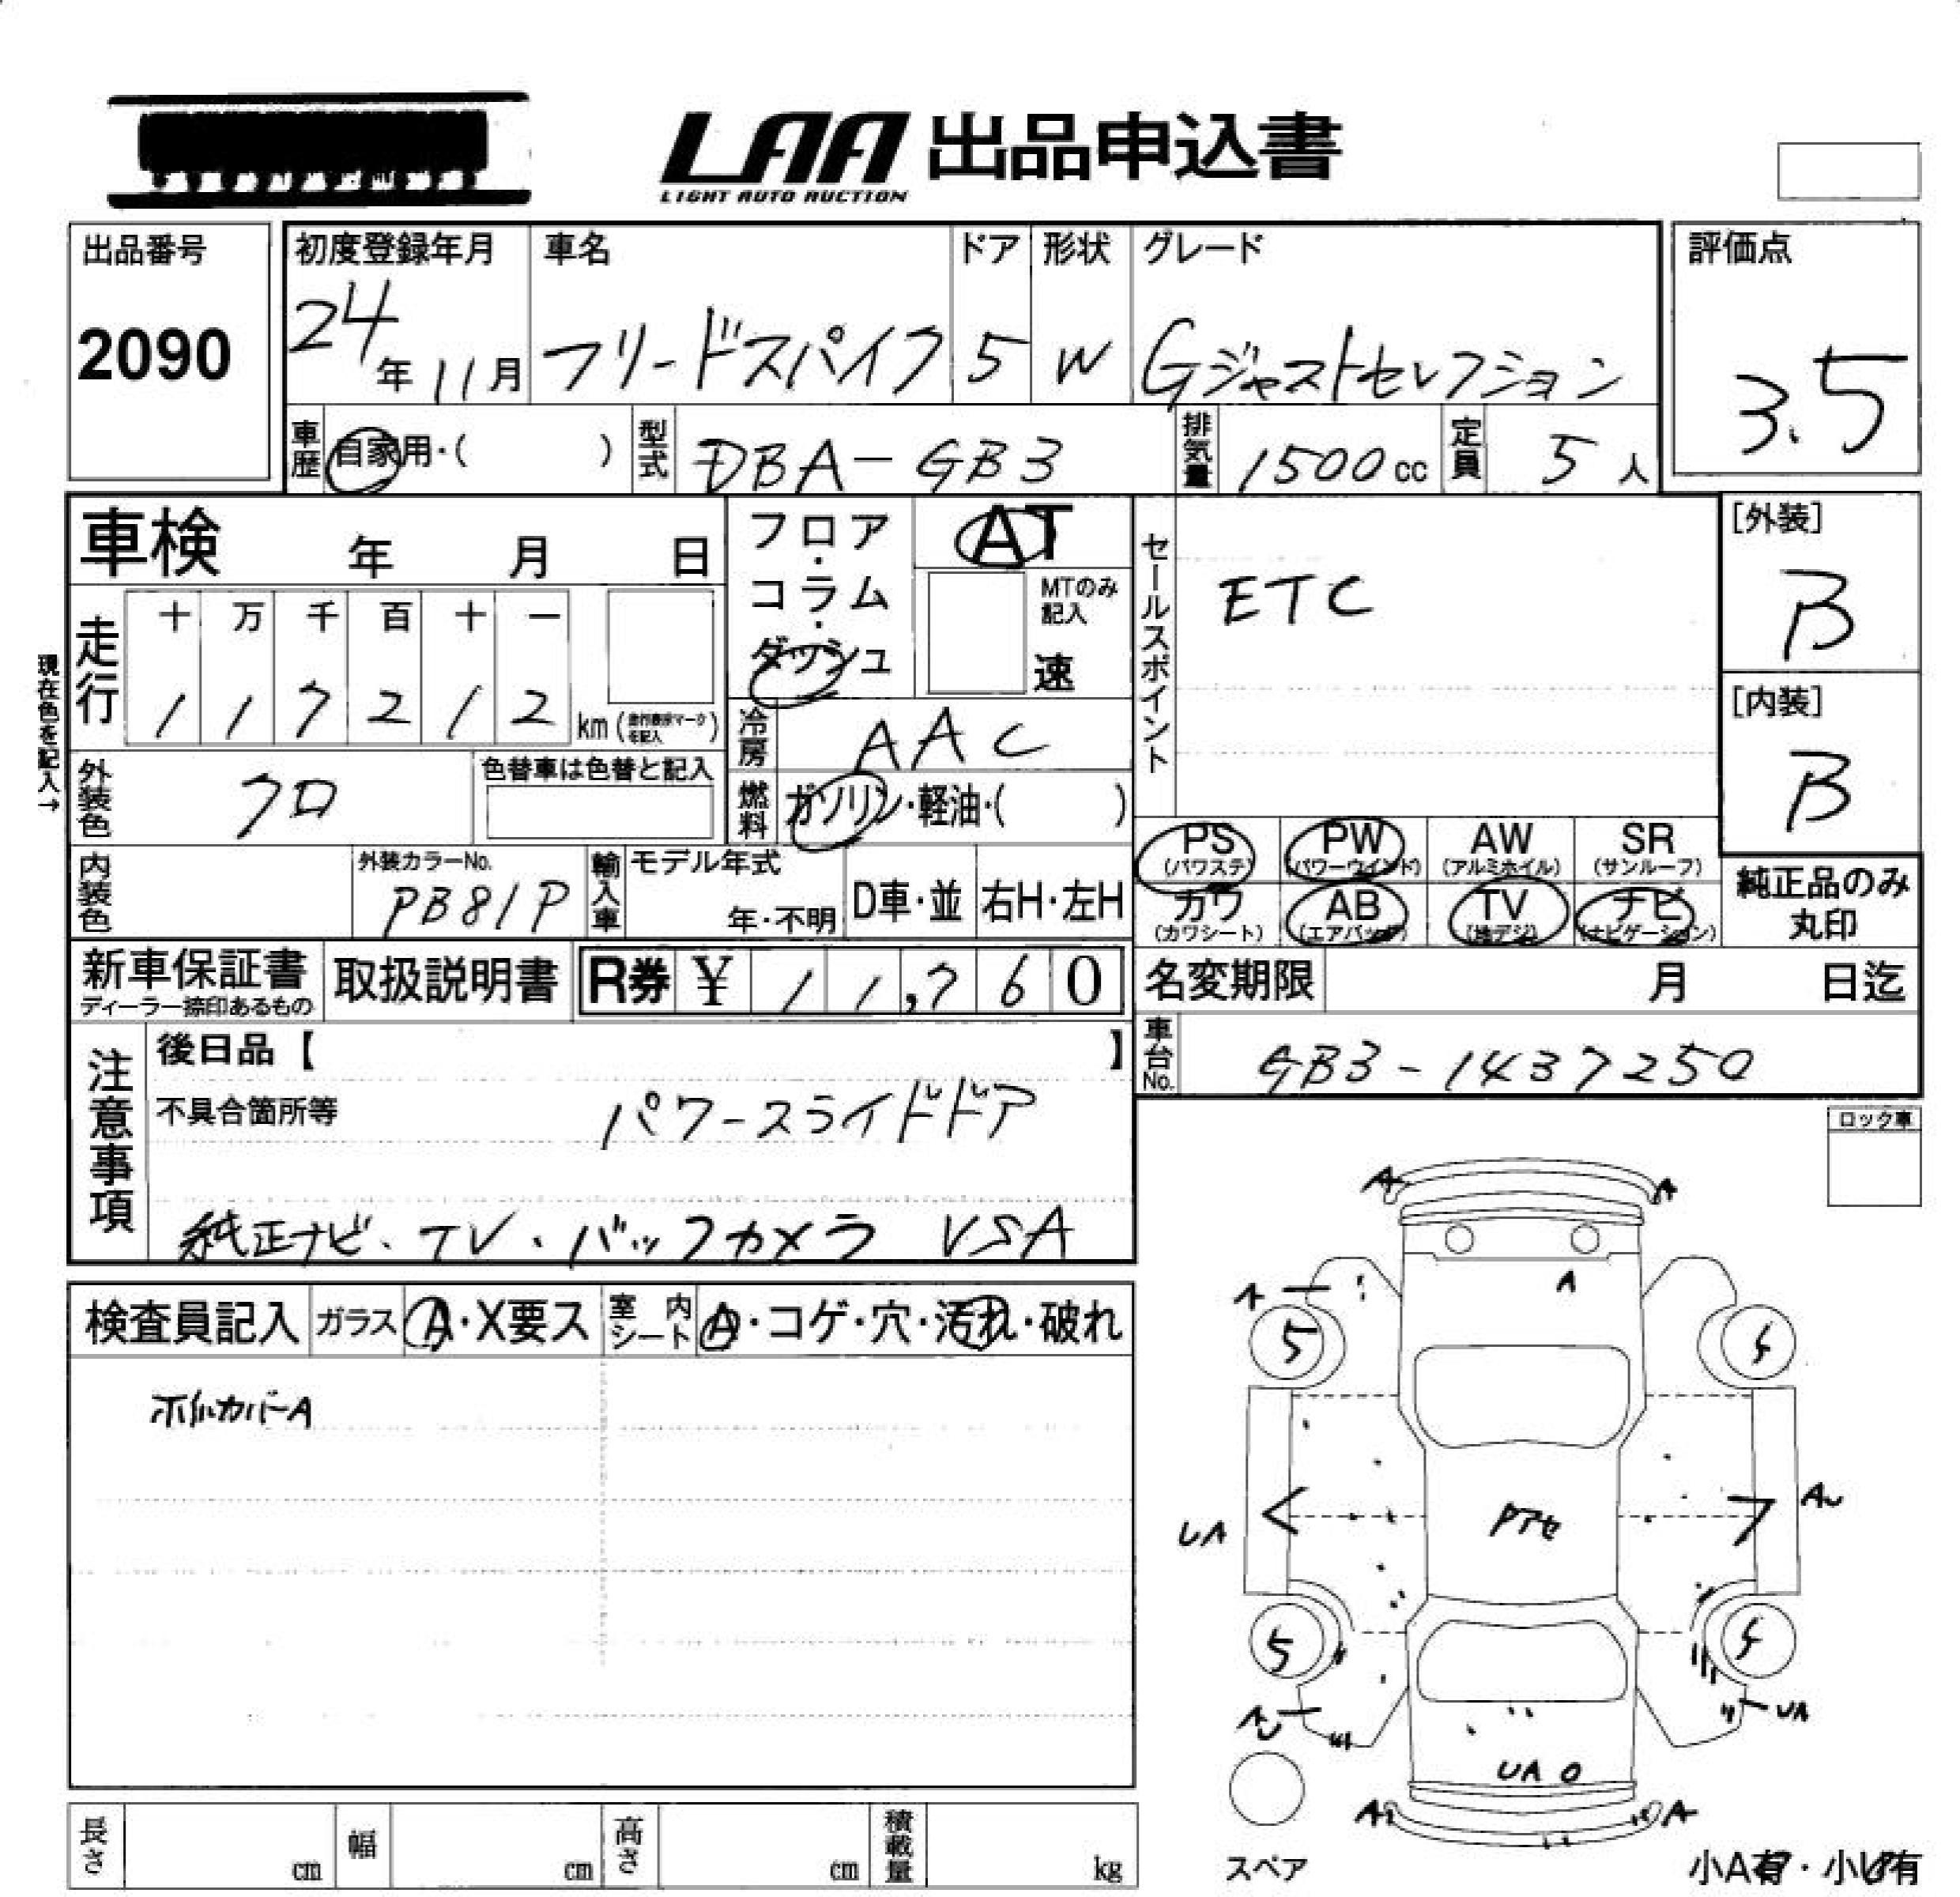 LAA 出品申込書
LIGHT AUTO AUCTION
出品番号
2090
初度登録年月
24年11月
車名
フリードスパイク
ドア
5
形状
W
グレード
Gジャストセレクション
評価点
3.5
車歴
自家用・( )
型式
DBA-GB3
排気量
1500cc
定員
5人
車検 年 月 日
フロア・コラム・ダッシュ
AT
MTのみ記入
速
セールスポイント
ETC
[外装]
B
[内装]
B
現在色を記入→
走行
十 万 千 百 十 一
1 1 7 2 1 2 km
冷房
AAC
外装色
クロ
色替車は色替と記入
燃料
ガソリン・軽油・( )
PS (パワステ)
PW (パワーウインド)
AW (アルミホイル)
SR (サンルーフ)
カワ (カワシート)
AB (エアバッグ)
TV (地デジ)
ナビ (ナビゲーション)
純正品のみ丸印
内装色
外装カラーNo.
PB81P
輸入車
モデル年式
年・不明
D車・並
右H・左H
新車保証書
ディーラー捺印あるもの
取扱説明書
R券 ¥ 11,760
名変期限 月 日迄
車台No.
GB3-1437250
注意事項
後日品【 】
不具合箇所等
パワースライドドア
純正ナビ、TV、バックカメラ VSA
ロック車
検査員記入
ガラス A・X要ス
室内シート A・コゲ・穴・汚れ・破れ
ホイルカバーA
A
A
A
A
5
5
UA
AU
Pアセ
5
5
AU
UA
UA
A
A
スペア
小A有・小U有
長さ cm
幅 cm
高さ cm
積載量 kg